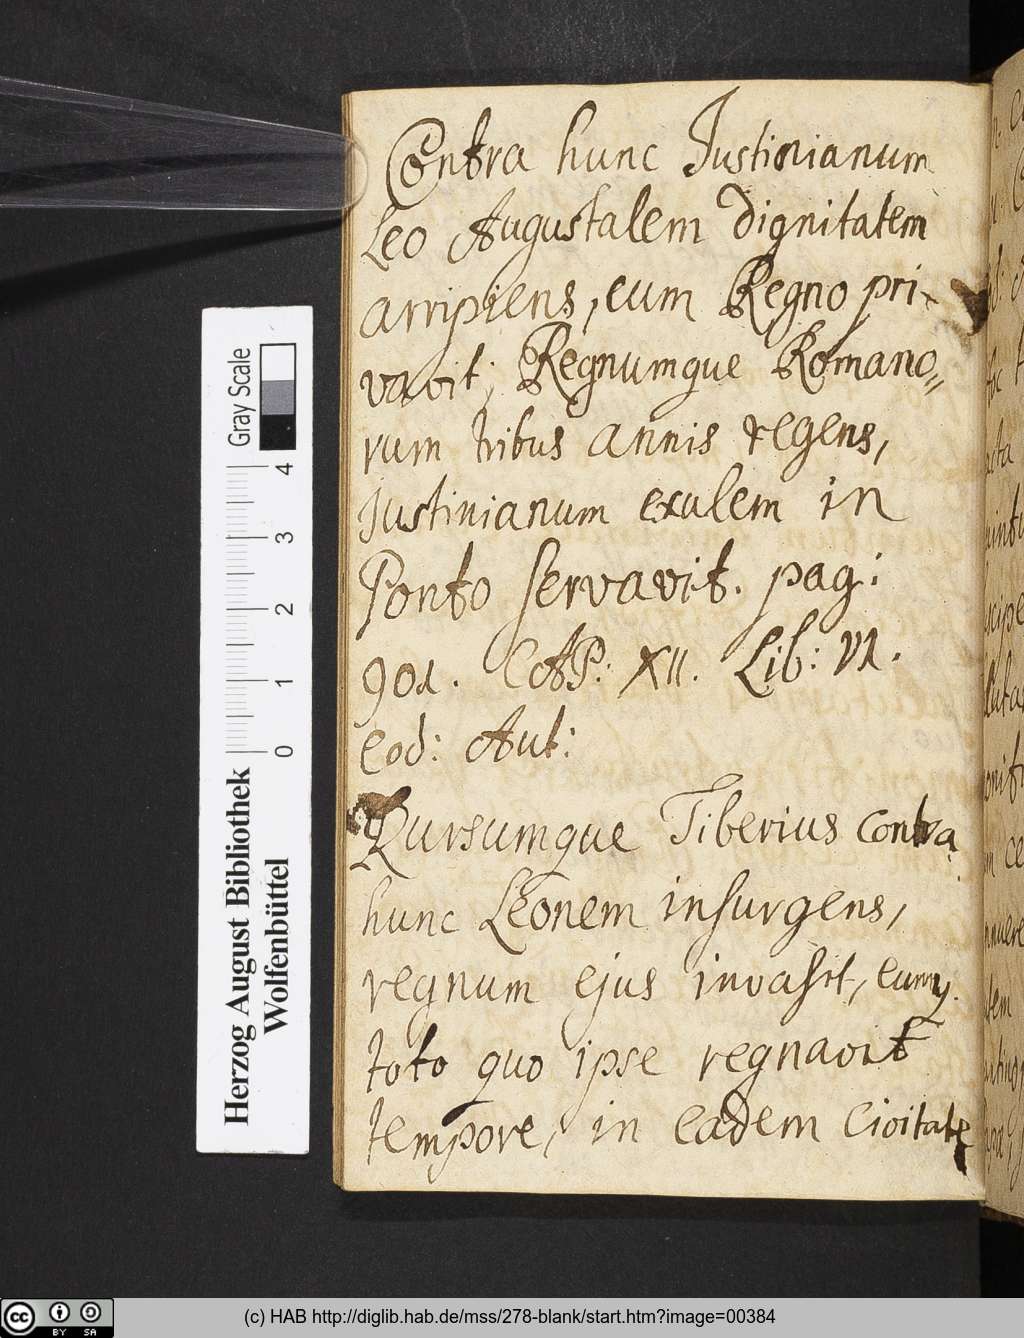 Contra hunc Justinianum
Leo Augustalem dignitatem
arripiens, eum Regno pri-
vavit; Regnumque Romano„
rum tribus annis regens,
Justinianum exulem in
Ponto servavit. pag:
901. CAP: XII. Lib: VI.
Eod: Aut:
Rursumque Tiberius contra
hunc Leonem insurgens,
regnum ejus invasit, eumq.
toto quo ipse regnavit
tempore, in eadem Civitate
Gray Scale
4
3
2
1
0
Herzog August Bibliothek
Wolfenbüttel
cc BY SA
(c) HAB http://diglib.hab.de/mss/278-blank/start.htm?image=00384